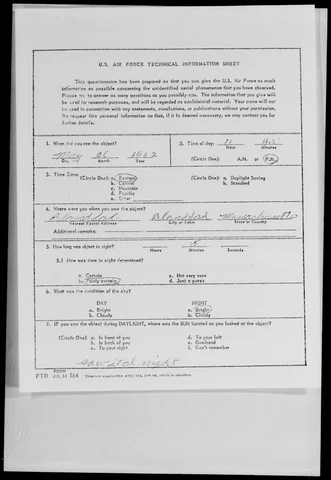 U.S. AIR FORCE TECHNICAL INFORMATION SHEET
This questionnaire has been prepared so that you can give the U.S. Air Force as much
information as possible concerning the unidentified aerial phenomenon that you have observed.
Please try to answer as many questions as you possibly can. The information that you give will
be used for research purposes, and will be regarded as confidential material. Your name will not
be used in connection with any statements, conclusions, or publications without your permission.
We request this personal information so that, if it is deemed necessary, we may contact you for
further details.
1. When did you see the object?
May 1962
Day Month Year
2. Time of day:
Hour Minutes
(Circle One): A.M. or P.M.
3. Time Zone:
(Circle One): a. Eastern
b. Central
c. Mountain
d. Pacific
e. Other
(Circle One): a. Daylight Saving
b. Standard
4. Where were you when you saw the object?
Blandford Massachusetts
Nearest Postal Address City or Town State or Country
Additional remarks:
5. How long was object in sight?
Hours Minutes Seconds
5.1 How was time in sight determined?
a. Certain c. Not very sure
b. Fairly certain d. Just a guess
6. What was the condition of the sky?
DAY NIGHT
a. Bright a. Bright
b. Cloudy b. Cloudy
7. IF you saw the object during DAYLIGHT, where was the SUN located as you looked at the object?
(Circle One): a. In front of you d. To your left
b. In back of you e. Overhead
c. To your right f. Don't remember
saw it at night
FTD FORM 164